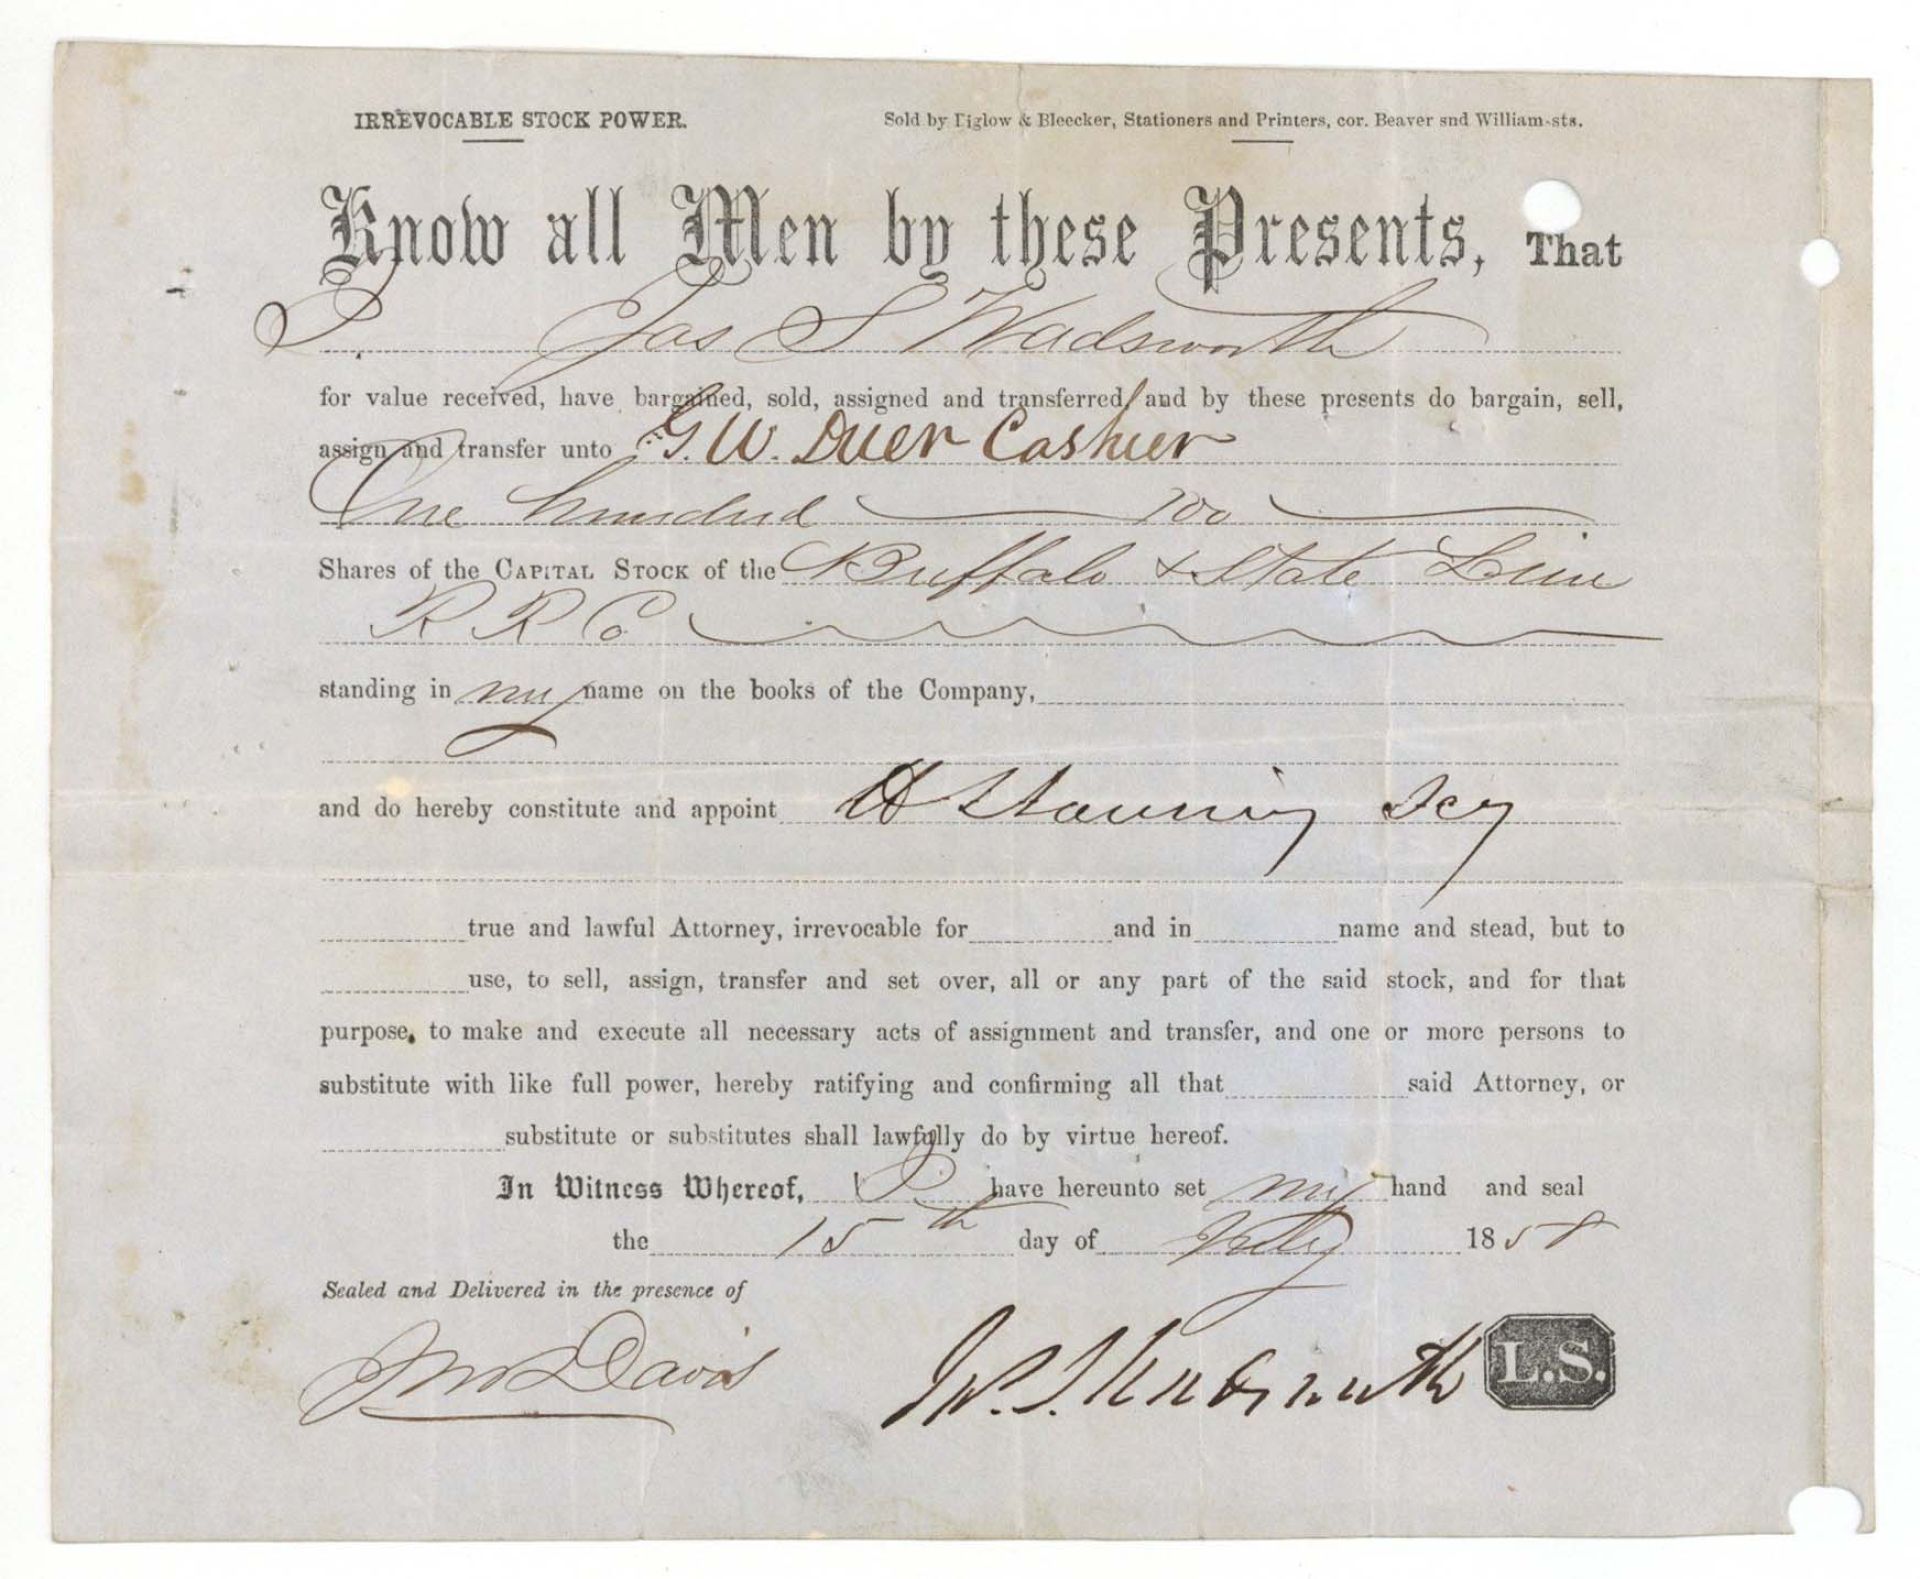 IRREVOCABLE STOCK POWER.
Sold by Biglow & Bleecker, Stationers and Printers, cor. Beaver snd William-sts.
Know all Men by these Presents, That
I. Jas S Wadsworth
for value received, have bargained, sold, assigned and transferred, and by these presents do bargain, sell,
assign and transfer unto G. W. Duer Cashier
One hundred 100
Shares of the CAPITAL STOCK of the Buffalo & State Line
R R Co
standing in my name on the books of the Company,
and do hereby constitute and appoint
true and lawful Attorney, irrevocable for and in name and stead, but to
use, to sell, assign, transfer and set over, all or any part of the said stock, and for that
purpose, to make and execute all necessary acts of assignment and transfer, and one or more persons to
substitute with like full power, hereby ratifying and confirming all that said Attorney, or
substitute or substitutes shall lawfully do by virtue hereof.
In Witness Whereof, I have hereunto set my hand and seal
the 15th day of 1858
Sealed and Delivered in the presence of
Davis
Jas. S. Wadsworth L.S.